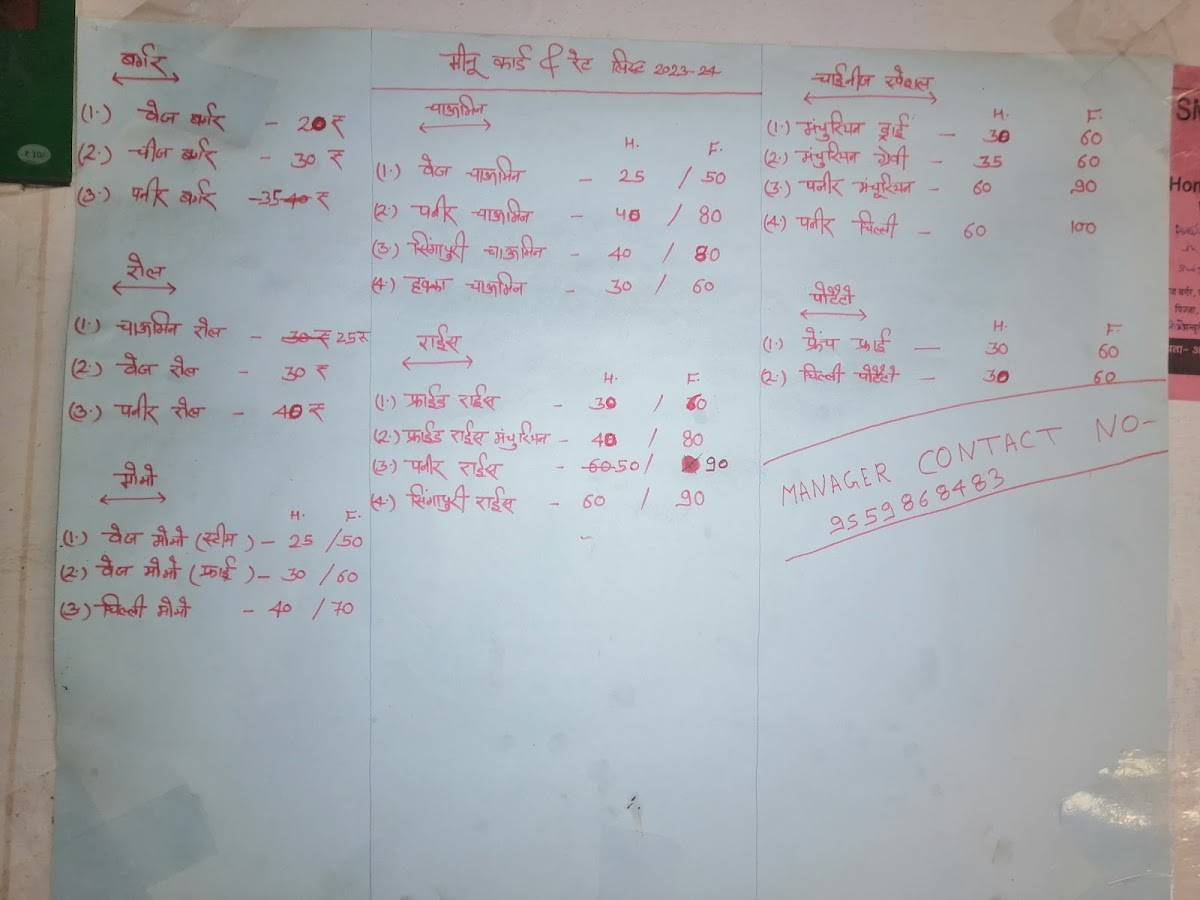 बर्गर
(1.) वेज बर्गर - 20 ₹
(2.) चीज बर्गर - 30 ₹
(3.) पनीर बर्गर - 35 40 ₹
रोल
(1.) चाऊमिन रोल - 30 ₹ 25 ₹
(2.) वेज रोल - 30 ₹
(3.) पनीर रोल - 40 ₹
मोमो
H. F.
(1.) वेज मोमो (स्टीम) - 25 / 50
(2.) वेज मोमो (फ्राई) - 30 / 60
(3.) चिल्ली मोमो - 40 / 70
मीनू कार्ड & रेट लिस्ट 2023-24
चाऊमिन
H. F.
(1.) वेज चाऊमिन - 25 / 50
(2.) पनीर चाऊमिन - 40 / 80
(3.) सिंगापुरी चाऊमिन - 40 / 80
(4.) हक्का चाऊमिन - 30 / 60
राईस
H. F.
(1.) फ्राईड राईस - 30 / 60
(2.) फ्राईड राईस मंचुरियन - 40 / 80
(3.) पनीर राईस - 60 50 / 90
(4.) सिंगापुरी राईस - 60 / 90
चाईनीज स्पेशल
H. F.
(1.) मंचुरियन ड्राई - 30 60
(2.) मंचुरियन ग्रेवी - 35 60
(3.) पनीर मंचूरियन - 60 90
(4.) पनीर चिल्ली - 60 100
पोटैटो
H. F.
(1.) फ्रेंच फ्राई - 30 60
(2.) चिल्ली पोटैटो - 30 60
MANAGER CONTACT NO-
9559868483
₹10/-
Hon